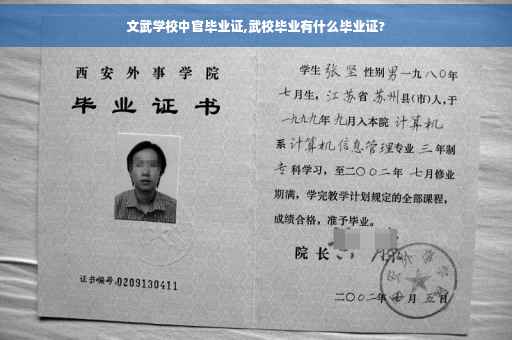 文武学校中官毕业证,武校毕业有什么毕业证?
西安外事学院
毕业证书
证书编号:0209130411
学生 张坚 性别 男 一九八〇年
七月生,江苏省 苏州县(市)人,于
一九九九年 九月入本院 计算机
系 计算机信息管理专业 三 年制
专科学习,至二〇〇二年 七月修业
期满,学完教学计划规定的全部课程,
成绩合格,准予毕业。
院长
二〇〇二年 月 五日